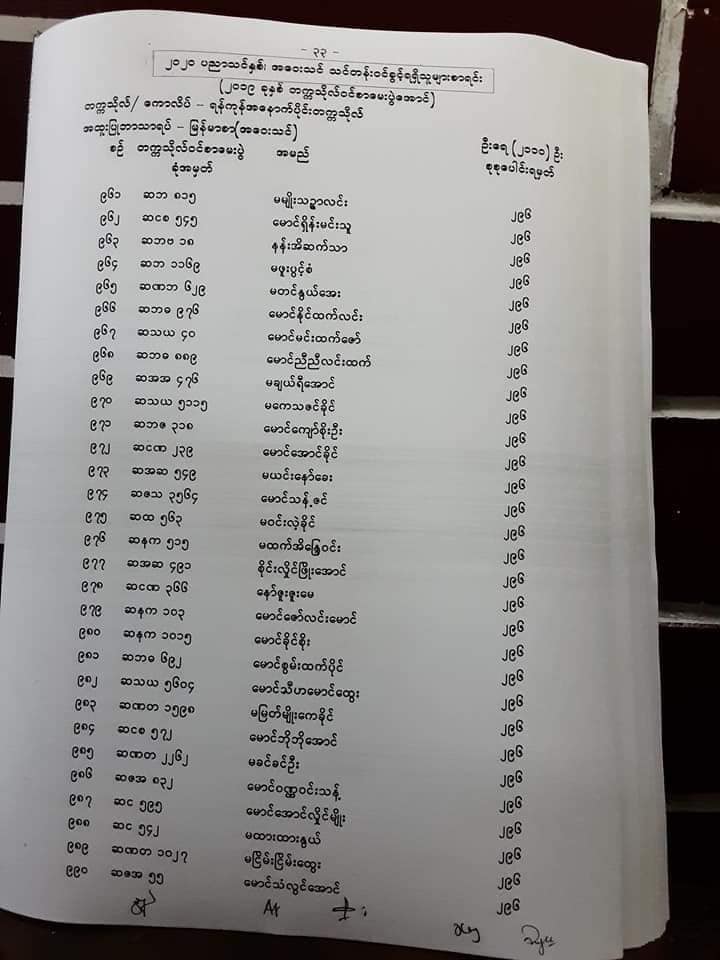 - ၃၃ -
၂၀၂၀ ပညာသင်နှစ်၊ အဝေးသင် သင်တန်းဝင်ခွင့်ရရှိသူများစာရင်း
(၂၀၁၉ ခုနှစ် တက္ကသိုလ်ဝင်စာမေးပွဲအောင်)
တက္ကသိုလ်/ ကောလိပ် – ရန်ကုန်အနောက်ပိုင်းတက္ကသိုလ်
အထူးပြုဘာသာရပ် – မြန်မာစာ(အဝေးသင်)
ဦးရေ (၂၁၁၀) ဦး
စဉ် တက္ကသိုလ်ဝင်စာမေးပွဲ ခုံအမှတ် အမည် စုစုပေါင်းရမှတ်
၉၆၁ ဆဘ ၈၁၅ မမျိုးသဉ္ဇာလင်း ၂၉၆
၉၆၂ ဆငစ ၅၄၅ မောင်ရှိန်းမင်းသူ ၂၉၆
၉၆၃ ဆဘဗ ၁၈ နန်းအိဆက်သာ ၂၉၆
၉၆၄ ဆဘ ၁၁၆၉ မဖူးပွင့်စံ ၂၉၆
၉၆၅ ဆဏဘ ၆၂၉ မတင်နွယ်အေး ၂၉၆
၉၆၆ ဆဘဓ ၉၇၆ မောင်နိုင်ထက်လင်း ၂၉၆
၉၆၇ ဆသယ ၄၀ မောင်မင်းထက်ဇော် ၂၉၆
၉၆၈ ဆဘဓ ၈၈၉ မောင်ညီညီလင်းထက် ၂၉၆
၉၆၉ ဆအအ ၄၇၆ မချယ်ရီအောင် ၂၉၆
၉၇၀ ဆသယ ၅၁၁၅ မကေသဇင်ခိုင် ၂၉၆
၉၇၁ ဆဘဇ ၃၁၈ မောင်ကျော်စိုးဦး ၂၉၆
၉၇၂ ဆငဏ ၂၃၉ မောင်အောင်ခိုင် ၂၉၆
၉၇၃ ဆအဆ ၅၄၉ မယင်းနော်ခေး ၂၉၆
၉၇၄ ဆဇသ ၃၅၆၄ မောင်သန့်ဇင် ၂၉၆
၉၇၅ ဆထ ၅၆၃ မဝင်းလဲ့ခိုင် ၂၉၆
၉၇၆ ဆနက ၅၁၅ မထက်အိန္ဒြေဝင်း ၂၉၆
၉၇၇ ဆအဆ ၄၉၁ စိုင်းလှိုင်ဖြိုးအောင် ၂၉၆
၉၇၈ ဆငဏ ၃၆၆ နော်ဇူးဇူးမေ ၂၉၆
၉၇၉ ဆနက ၁၀၃ မောင်ဇော်လင်းမောင် ၂၉၆
၉၈၀ ဆနက ၁၀၁၅ မောင်ခိုင်စိုး ၂၉၆
၉၈၁ ဆဘဓ ၆၉၂ မောင်စွမ်းထက်ပိုင် ၂၉၆
၉၈၂ ဆသယ ၅၆၀၄ မောင်သီဟမောင်ထွေး ၂၉၆
၉၈၃ ဆဏတ ၁၅၉၈ မမြတ်မျိုးကေခိုင် ၂၉၆
၉၈၄ ဆငစ ၅၇၂ မောင်ဘိုဘိုအောင် ၂၉၆
၉၈၅ ဆဏတ ၂၂၆၂ မခင်ခင်ဦး ၂၉၆
၉၈၆ ဆဇအ ၈၃၂ မောင်ဝဏ္ဏဝင်းသန့် ၂၉၆
၉၈၇ ဆင ၅၉၅ မောင်အောင်လှိုင်မျိုး ၂၉၆
၉၈၈ ဆင ၅၄၂ မထားထားနွယ် ၂၉၆
၉၈၉ ဆဏတ ၁၀၂၇ မငြိမ်းငြိမ်းထွေး ၂၉၆
၉၉၀ ဆဇအ ၅၅ မောင်သံလွင်အောင် ၂၉၆